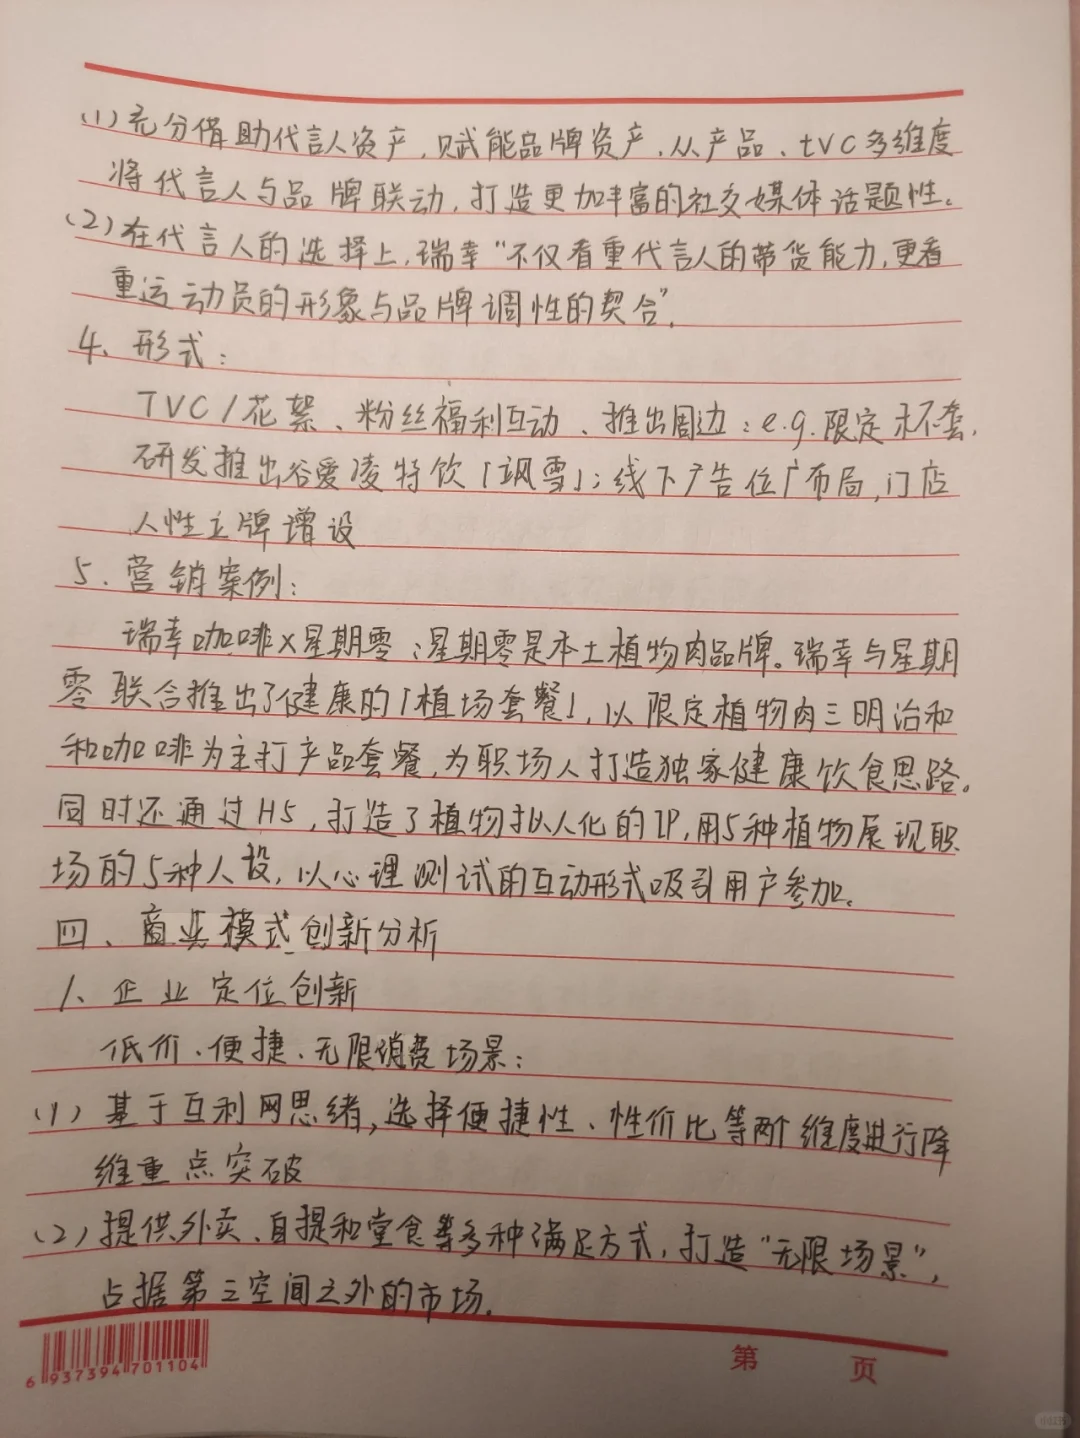 (1)充分借助代言人资产,赋能品牌资产,从产品、tVC多维度
将代言人与品牌联动,打造更加丰富的社交媒体话题性。
(2)在代言人的选择上,瑞幸“不仅看重代言人的带货能力,更看
重运动员的形象与品牌调性的契合”。
4、形式:
TVC/花絮、粉丝福利互动、推出周边:e.g.限定杯套,
研发推出谷爱凌特饮「飒雪」;线下广告位广布局,门店
人性立牌增设
5.营销案例:
瑞幸咖啡×星期零:星期零是本土植物肉品牌。瑞幸与星期
零联合推出了健康的「植场套餐」,以限定植物肉三明治和
和咖啡为主打产品套餐,为职场人打造独家健康饮食思路。
同时还通过H5,打造了植物拟人化的IP,用5种植物展现职
场的5种人设,以心理测试的互动形式吸引用户参加。
四、商业模式创新分析
1、企业定位创新
低价、便捷、无限消费场景:
(1)基于互利网思绪,选择便捷性、性价比等两个维度进行降
维重点突破
(2)提供外卖、自提和堂食等多种满足方式,打造“无限场景”,
占据第三空间之外的市场.
6 937394 701104
第 页
小红书